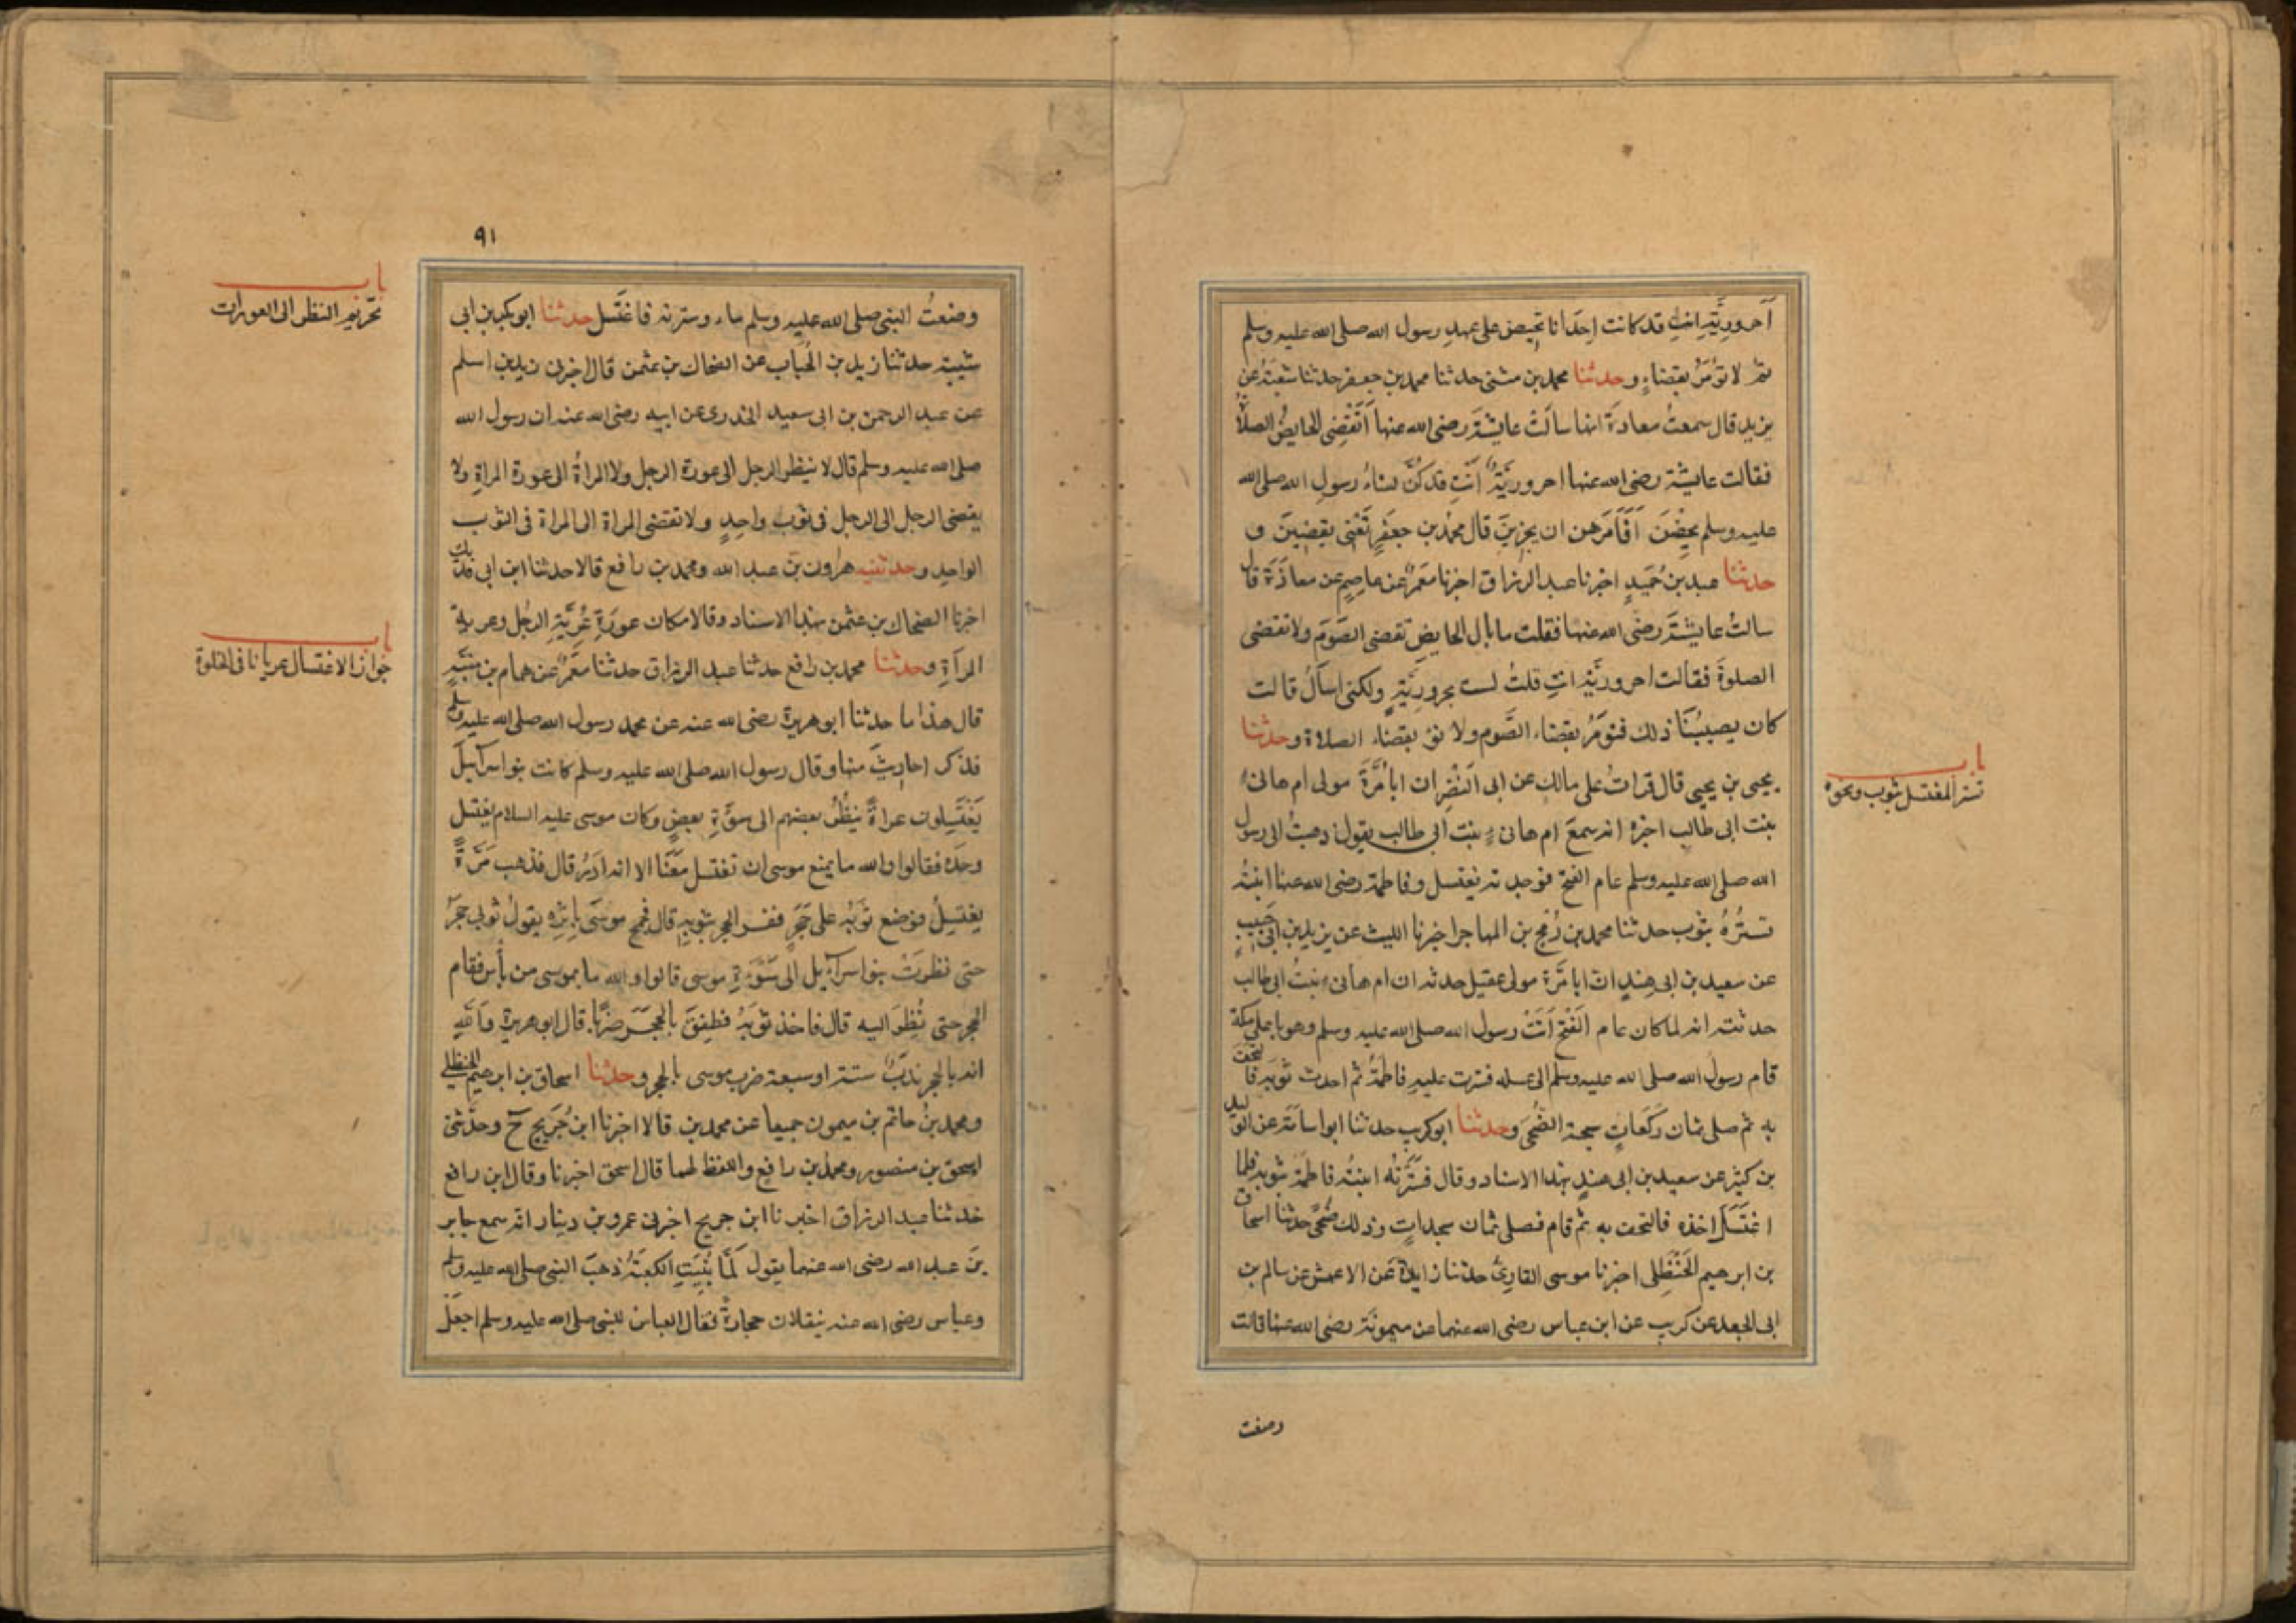 أحرورية انت قد كانت احدانا تحيض على عهد رسول الله صلى الله عليه وسلم
ثم لا تؤمر بقضاء وحدثنا محمد بن مثنى حدثنا محمد بن جعفر حدثنا شعبة عن
يزيد قال سمعت معاذة انها سالت عايشة رضى الله عنها أتقضى الحايض الصلاة
فقالت عايشة رضى الله عنها احرورية أنت قد كن نساء رسول الله صلى الله
عليه وسلم يحضن أفأمرهن ان يجزين قال محمد بن جعفر تعنى يقضين و
حدثنا عبد بن حميد اخبرنا عبد الرزاق اخبرنا معمر عن عاصم عن معاذة قالت
سالت عايشة رضى الله عنها فقلت ما بال الحايض تقضى الصوم ولا تقضى
الصلوة فقالت احرورية انت قلت لست بحرورية ولكنى اسأل قالت
كان يصيبنا ذلك فنومر بقضاء الصوم ولا نؤ بقضاء الصلاة وحدثنا
باب
تستر المغتسل بثوب ونحوه
يحيى بن يحيى قال قرات على مالك عن ابى النضر ان ابا مرة مولى ام هانىء
بنت ابى طالب اخبره انه سمع ام هانىء بنت ابى طالب يقول ذهبت الى رسول
الله صلى الله عليه وسلم عام الفتح فوجدته يغتسل وفاطمة رضى الله عنها ابنته
تستره بثوب حدثنا محمد بن رمح بن المهاجر اخبرنا الليث عن يزيد بن ابى حبيب
عن سعيد بن ابى هند ان ابا مرة مولى عقيل حدثه ان ام هانىء بنت ابى طالب
حدثته انه لما كان عام الفتح أتت رسول الله صلى الله عليه وسلم وهو باعلى مكة
قام رسول الله صلى الله عليه وسلم الى غسله فسترت عليه فاطمة ثم اخذت ثوبه فالتحف
به ثم صلى ثمان ركعات سبحة الضحى وحدثنا ابو كريب حدثنا ابو اسامة عن الوليد
بن كثير عن سعيد بن ابى هند بهذا الاسناد وقال فسترته ابنته فاطمة بثوبه فلما
اغتسل اخذه فالتحف به ثم قام فصلى ثمان سجدات وذلك ضحى حدثنا اسحاق
بن ابرهيم الحنظلى اخبرنا موسى القارئ حدثنا زايدة عن الاعمش عن سالم بن
ابى الجعد عن كريب عن ابن عباس رضى الله عنهما عن ميمونة رضى الله عنها قالت
وضعت
٩١
وضعت النبى صلى الله عليه وسلم ماء وسترته فاغتسل حدثنا ابو بكر بن ابى
باب
تحريم النظر الى العورات
شيبة حدثنا زيد بن الحباب عن الضحاك بن عثمن قال اخبرنى زيد بن اسلم
عن عبد الرحمن بن ابى سعيد الخدرى عن ابيه رضى الله عنه ان رسول الله
صلى الله عليه وسلم قال لا ينظر الرجل الى عورة الرجل ولا المراة الى عورة المراة ولا
يفضى الرجل الى الرجل فى ثوب واحد ولا تفضى المراة الى المراة فى الثوب
الواحد وحدثنيه هرون بن عبد الله ومحمد بن رافع قالا حدثنا ابن ابى فديك
اخبرنا الضحاك بن عثمن بهذا الاسناد وقالا مكان عورة عرية الرجل وعرية
المرأة وحدثنا محمد بن رافع حدثنا عبد الرزاق حدثنا معمر عن همام بن منبه
باب
جواز الاغتسال عريانا فى الخلوة
قال هذا ما حدثنا ابو هريرة رضى الله عنه عن محمد رسول الله صلى الله عليه وسلم
فذكر احاديث منها وقال رسول الله صلى الله عليه وسلم كانت بنو اسرآئيل
يغتسلون عراة ينظر بعضهم الى سوءة بعض وكان موسى عليه السلام يغتسل
وحده فقالوا والله ما يمنع موسى ان تغتسل معنا الا انه ادر قال فذهب مرة
يغتسل فوضع ثوبه على حجر ففر الحجر بثوبه قال فجمح موسى باثره يقول ثوبى حجر
حتى نظرت بنو اسرآئيل الى سوءة موسى قالوا والله ما بموسى من بأس فقام
الحجر حتى نظر اليه قال فاخذ ثوبه فطفق بالحجر ضربا قال ابو هريرة والله
انه بالحجر ندب ستة او سبعة ضرب موسى بالحجر وحدثنا اسحاق بن ابرهيم الحنظلى
ومحمد بن حاتم بن ميمون جميعا عن محمد بن قالا اخبرنا ابن جريج ح وحدثنى
اسحق بن منصور ومحمد بن رافع واللفظ لهما قال اسحق اخبرنا وقال ابن رافع
حدثنا عبد الرزاق اخبرنا ابن جريج اخبرنى عمرو بن دينار انه سمع جابر
بن عبد الله رضى الله عنهما يقول لما بنيت الكعبة ذهب النبى صلى الله عليه وسلم
وعباس رضى الله عنه ينقلان حجارة فقال العباس للنبى صلى الله عليه وسلم اجعل